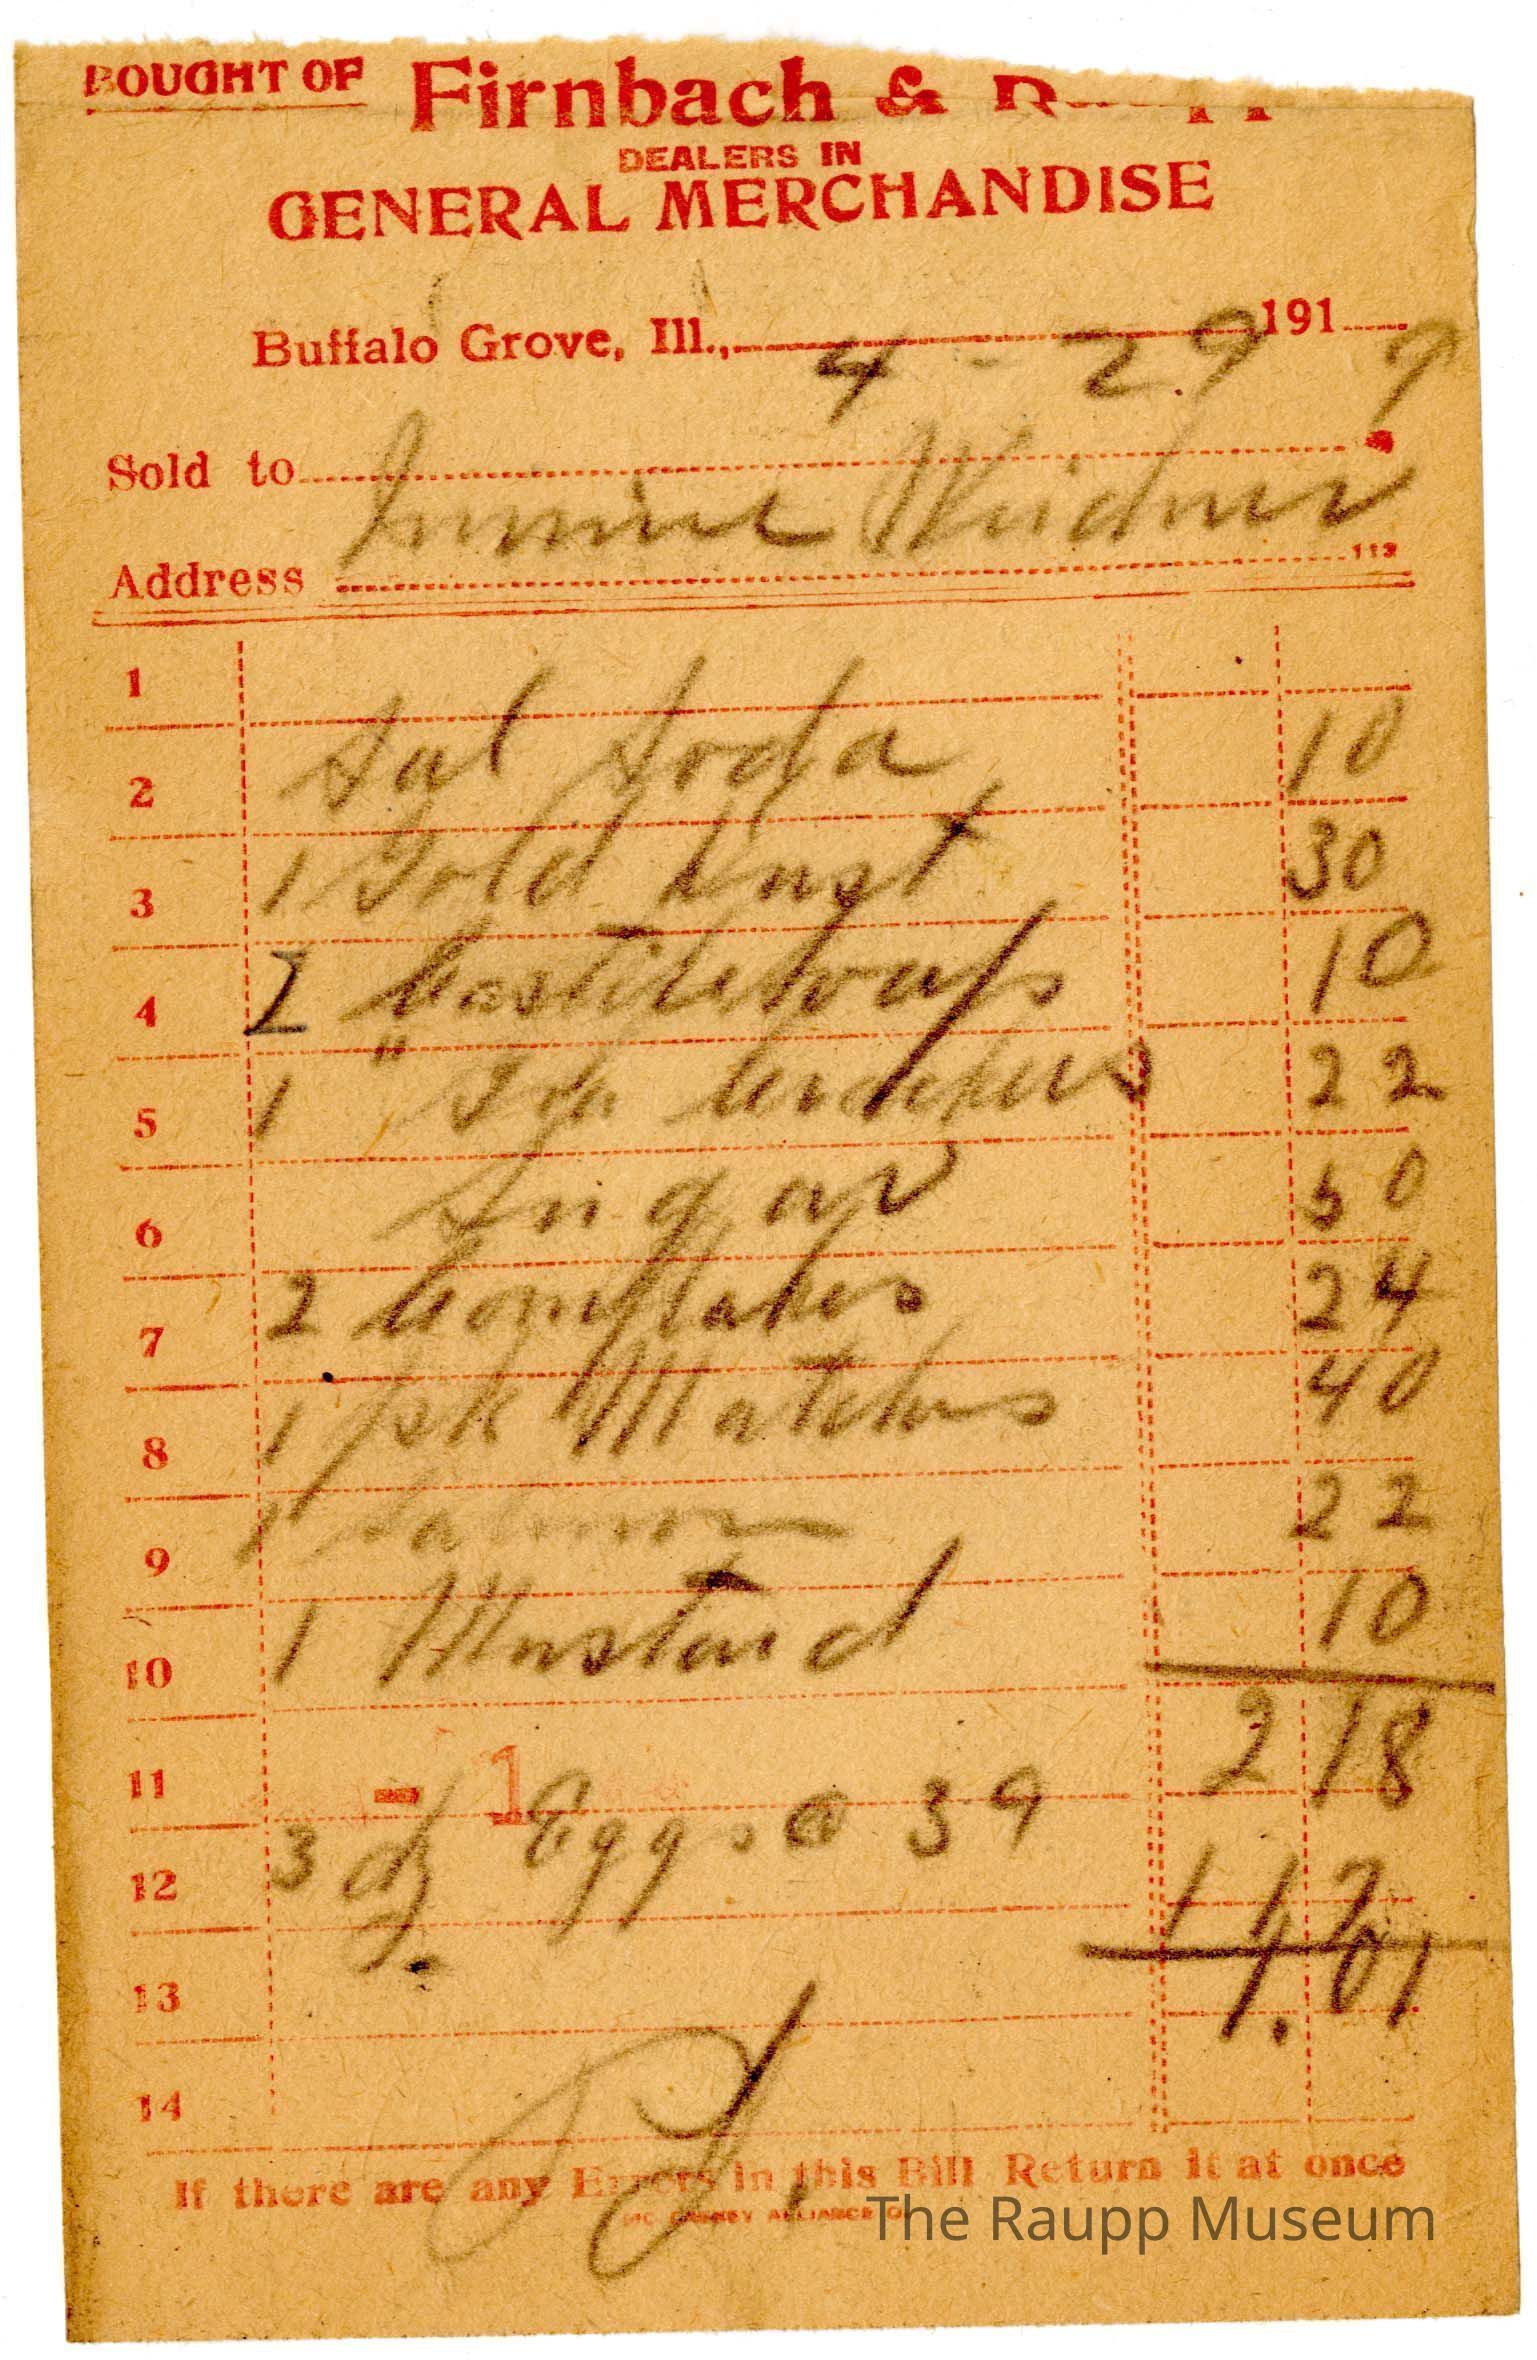 BOUGHT OF Firnbach &
DEALERS IN
GENERAL MERCHANDISE
Buffalo Grove, Ill., 4 - 29 191 9
Sold to
Weidner
Address 113
1
2 Sal Soda 10
3 1 Gold Dust 30
4 2 Castile Soaps 10
5 1 " Crackers 22
6 Sugar 50
7 2 Cornflakes 24
8 1 pk Matches 40
9 1 Salmon 22
10 1 Mustard 10
11 - 1 2 18
12 3 dz Eggs @ 39 1 17
13 1.01
14
If there are any Errors in this Bill Return it at once
The Raupp Museum